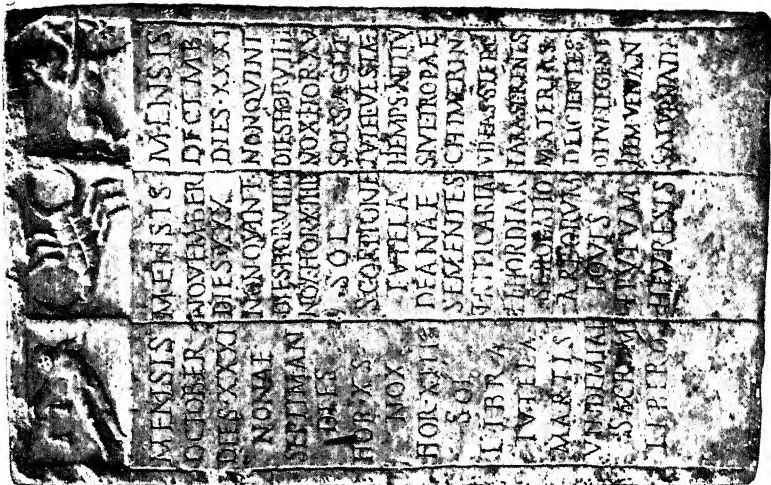 MENSIS
OCTOBER
DIES·XXXI
NONAE
SEPTIMAN
DIES
HOR·X·S
NOX
HOR·XIII
SOL
LIBRA
TVTELA
MARTIS
VINDEMIAE
SACRVM
LIBERO
MENSIS
NOVEMBER
DIES·XXX
NON·QVINT
DIES·HOR·VIIII
NOX·HOR·XIIII
SOL
SCORPIONE
TVTELA
DEANAE
SEMENTES
TRITICARIAE
ET HORDIAR
SCROBATIO
ARBORVM
IOVIS
EPVLVM
HEVRESIS
MENSIS
DECEMB
DIES·XXXI
NON·QVINT
DIES·HOR·VIIII
NOX·HOR·XV
SOL·SAGITT
TVTEL·VESTAE
HIEMPS·INITIV
SIVE TROPAE
CHIMERIN
VINEAS STERC
FABA SERENTES
MATERIAS
DEICIENTES
OLIVA LEGENT
ITEM VENAN
SATVRNALIA